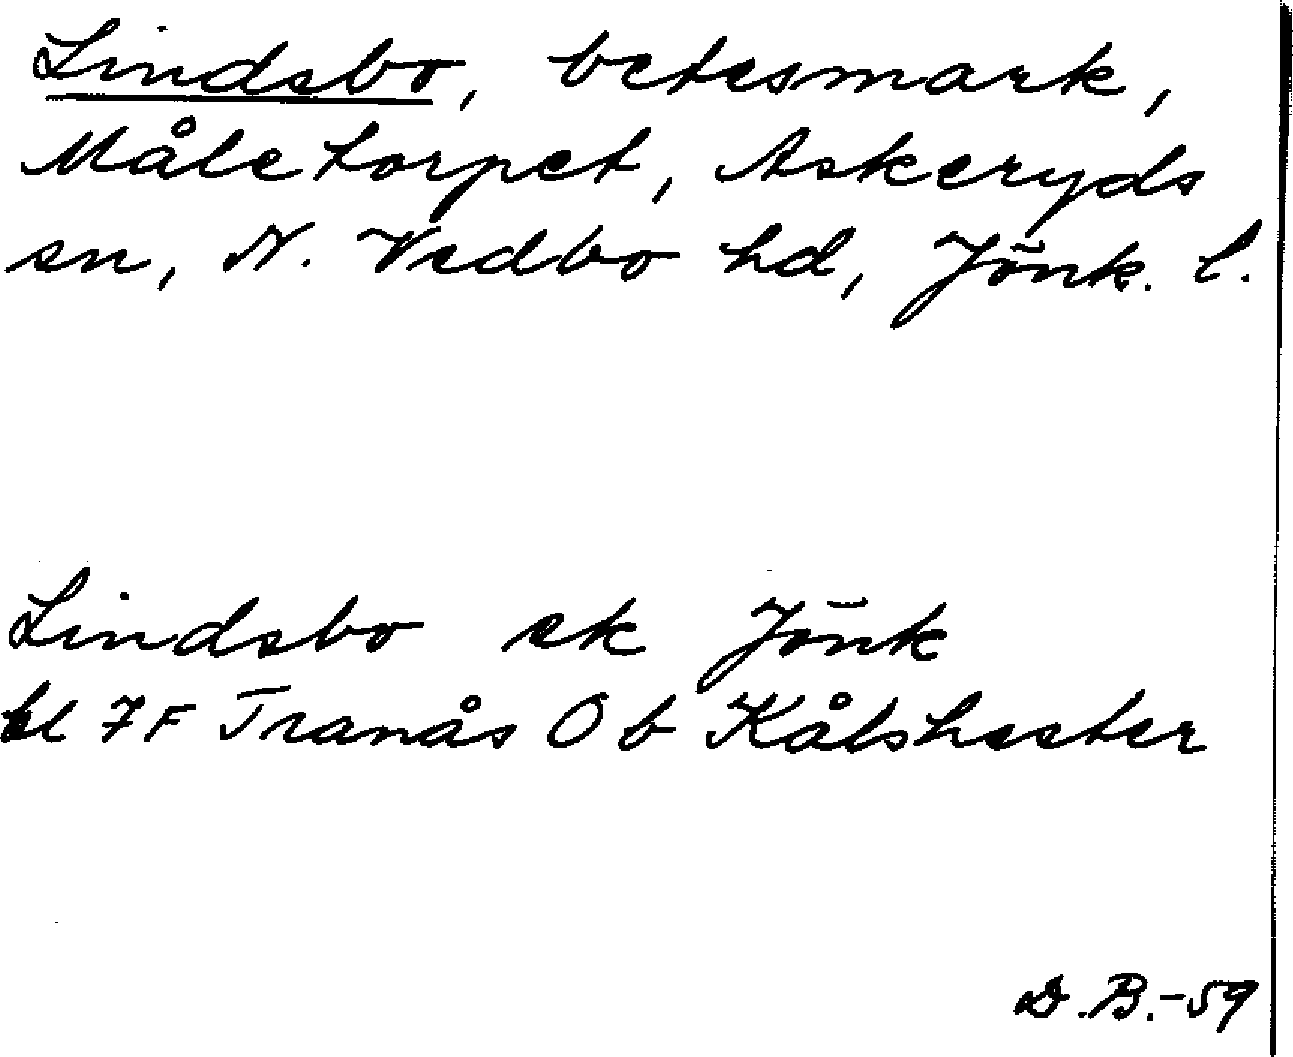 Lindsbo, betesmark,
Måletorpet, Askeryds
sn, N. Vedbo hd, Jönk. l.
Lindsbo ek Jönk
bl 7F Tranås O b Kålshester
D.B.-59